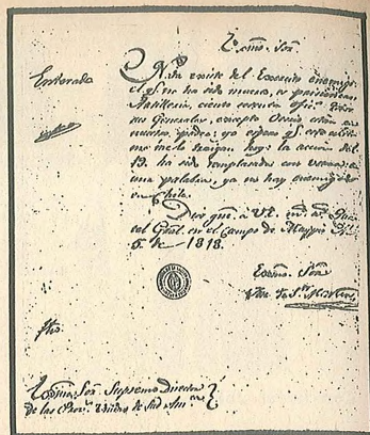 Exmo. Sor.
Enterado
Nada existe del Exercito enemigo
el qe. no ha sido muerto, es prisionero
Artilleria, ciento sesenta ofis. todos
sus Generales, excepto Osorio estan en
nuestro poder: yo espero qe. este ultimo
me lo traigan hoy: la accion del
19. ha sido
una palabra, ya no hay enemigos
en Chile.
Dios gue. á V.E. ms. as. Quartel
Gral. en el Campo de Maypu Al.
5 de 1818.
Exmo. Sor.
Jose de Sn. Martin
Exmo. Sor. Supremo Director
de las Provs. Unidas de Sud Ama.